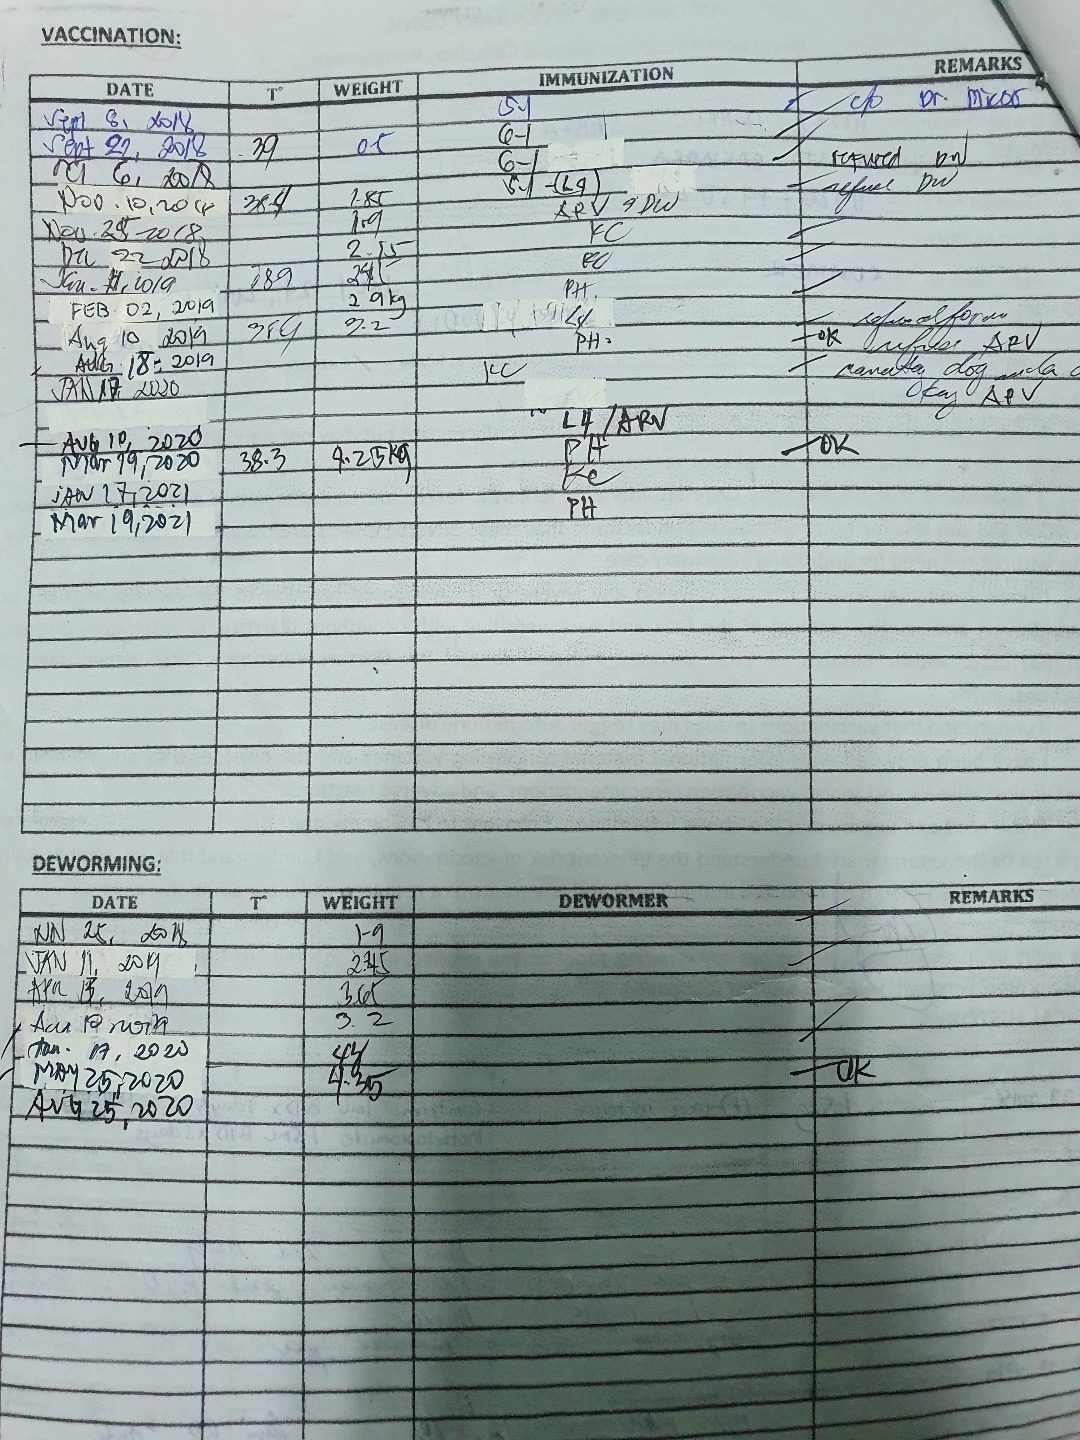 VACCINATION:
DATE T° WEIGHT IMMUNIZATION REMARKS
Sept 8, 2018 5-1 c/o Dr.
Sept 22, 2018 39 0.5 6-1
6, 2018 6-1 refused DW
Nov. 10, 2018 38.4 1.85 5-1 (L4) refuse DW
Nov. 25 2018 1.9 ARV & DW
22 2018 2.15 KC
Jan. 11, 2019 KC
FEB 02, 2019 2.9kg PH
Aug 10 2019 3.2 L4 refusal form
AUG 18, 2019 PH OK refuse ARV
JAN 17, 2020 KC dog
Okay ARV
AUG 10, 2020 L4/ARV
Mar 19, 2020 38.3 4.25kg PH OK
JAN 17, 2021 KC
Mar 19, 2021 PH
DEWORMING:
DATE T° WEIGHT DEWORMER REMARKS
25, 2018 1.9
JAN 11, 2019 2.45
2019 3.65
3.2
Jan. 17, 2020
MAY 25, 2020 4.35 OK
AUG 25, 2020